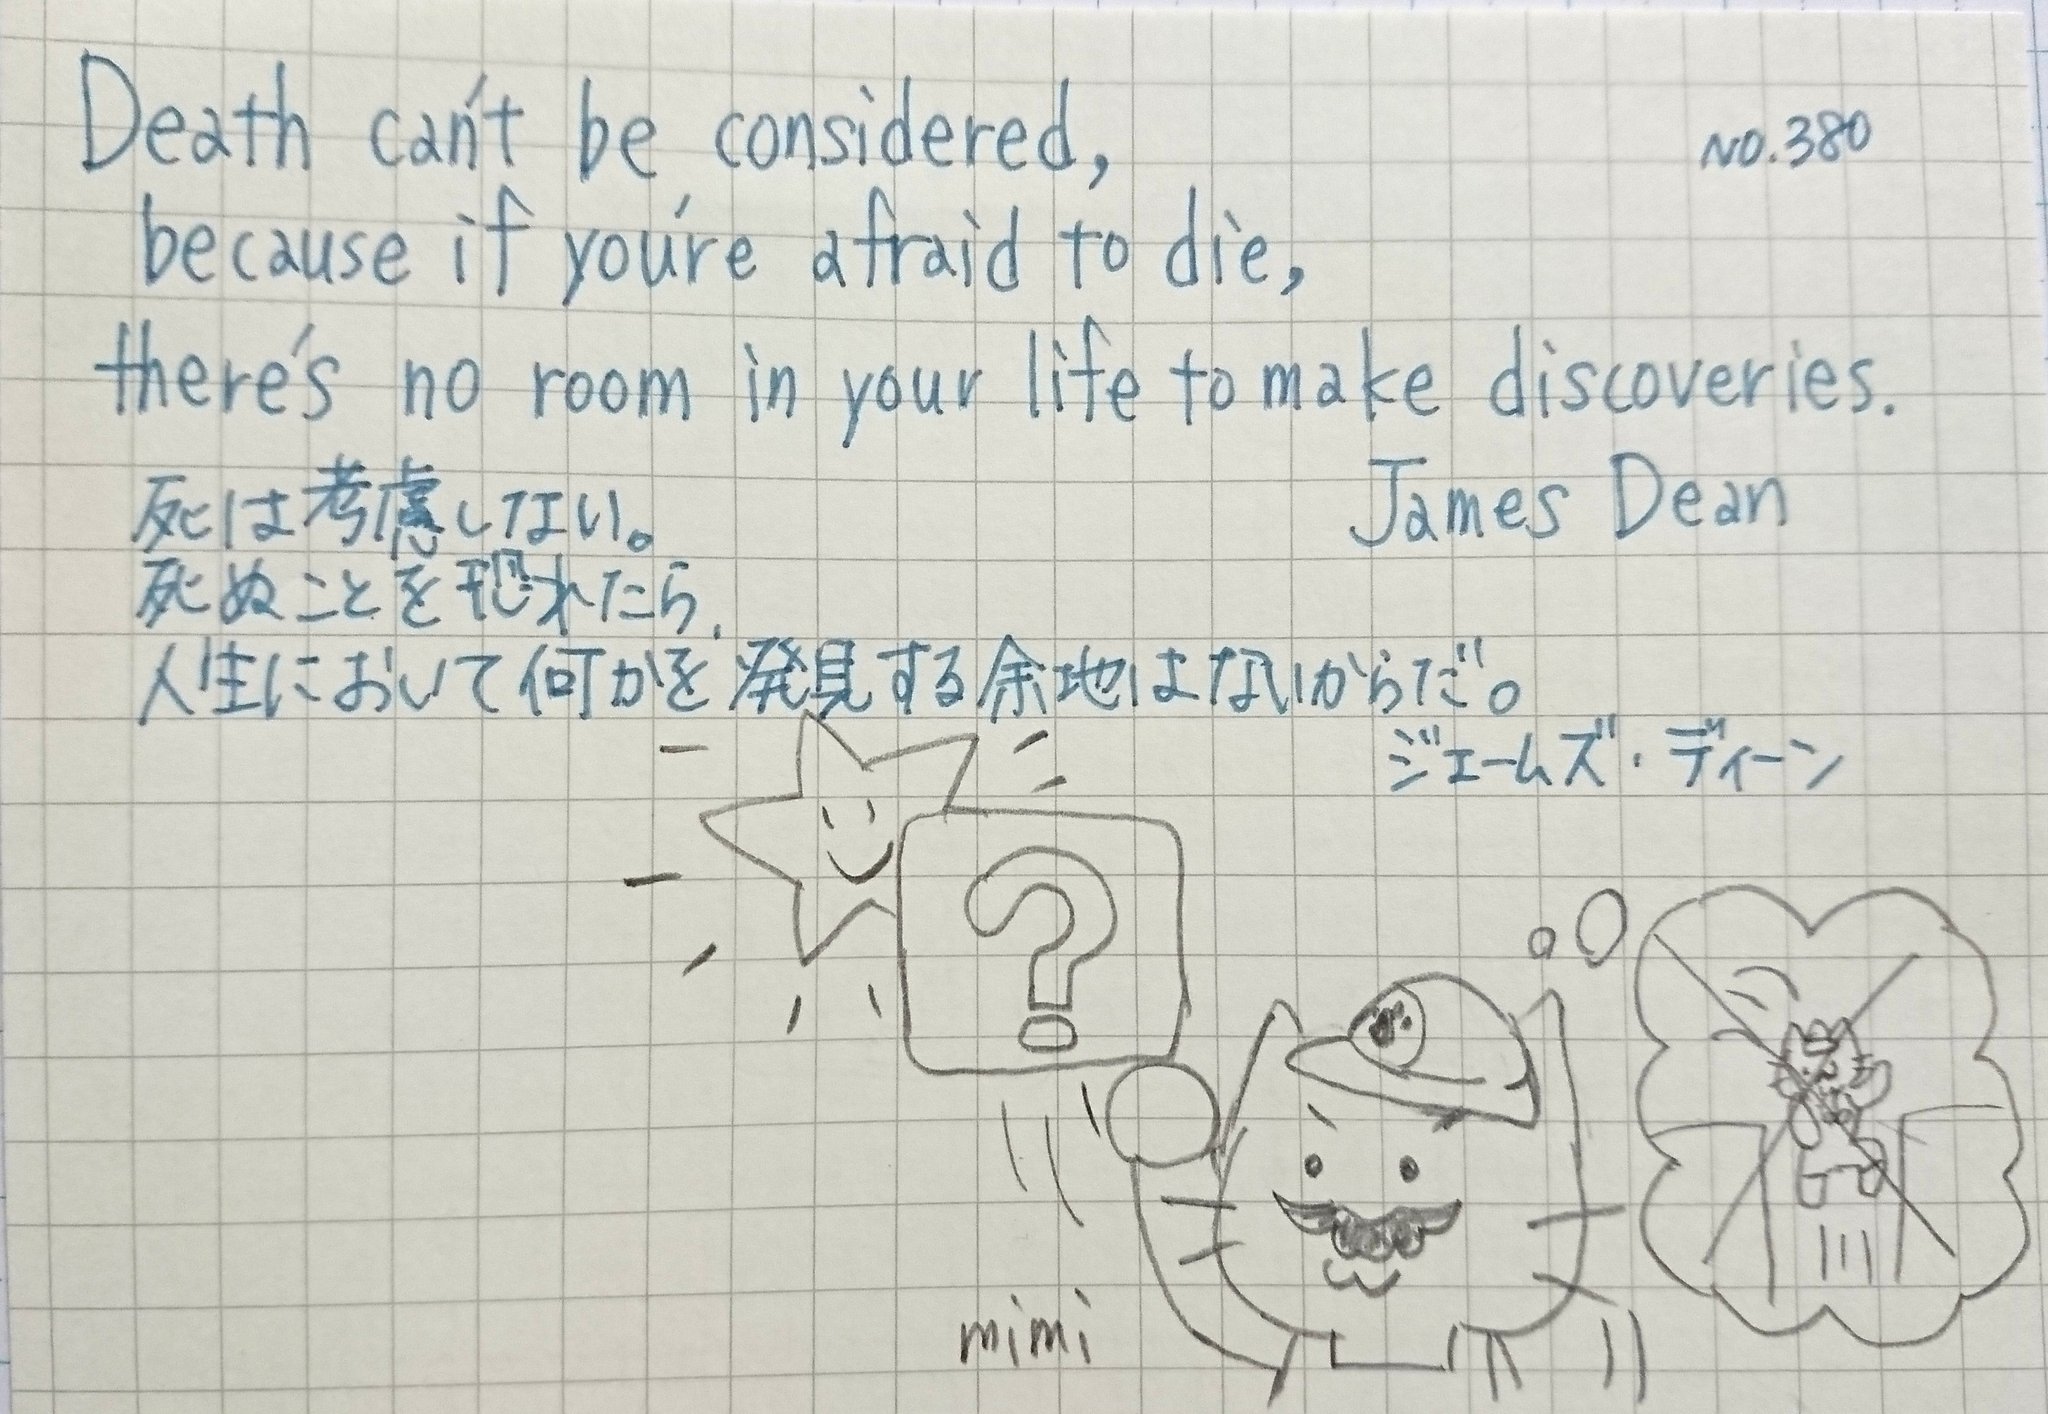 Death can't be considered,
NO.380
because if you're afraid to die,
there's no room in your life to make discoveries.
James Dean
死は考慮しない。
死ぬことを恐れたら、
人生において何かを発見する余地はないからだ。
ジェームズ・ディーン
?
mimi